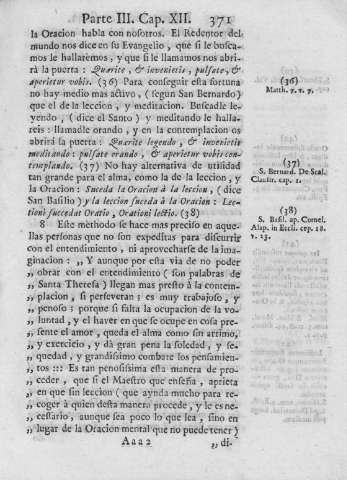 Parte III. Cap. XII. 371
la Oracion habla con nosotros. El Redentor del
mundo nos dice en su Evangelio, que si le busca-
mos le hallaremos, y que si le llamamos nos abri-
rà la puerta: Quærite, & invenietis, pulsate, &
aperietur vobis. (36) Para conseguir esta fortuna
no hay medio mas activo, (segun San Bernardo)
que el de la leccion, y meditacion. Buscadle le-
yendo, (dice el Santo) y meditando le halla-
reis: llamadle orando, y en la contemplacion os
abrirà la puerta: Quærite legendo, & invenietis
meditando: pulsate orando, & aperietur vobis con-
templando. (37) No hay alternativa de utilidad
tan grande para el alma, como la de la leccion, y
la Oracion: Suceda la Oracion à la leccion, (dice
San Basilio) y la leccion suceda à la Oracion: Lec-
tioni succedat Oratio, Orationi lectio. (38)
8 Este methodo se hace mas preciso en aque-
llas personas que no son expeditas para discurrir
con el entendimiento, ni aprovecharse de la ima-
ginacion: ,, Y aunque por esta via de no poder
,, obrar con el entendimiento (son palabras de
,, Santa Theresa) llegan mas presto à la contem-
,, placion, si perseveran: es muy trabajoso, y
,, penoso: porque si falta la ocupacion de la vo-
,, luntad, y el haver en que se ocupe en cosa pre-
,, sente el amor, queda el alma como sin arrimo,
,, y exercicio, y dà gran pena la soledad, y se-
,, quedad, y grandissimo combate los pensamien-
,, tos ::: Es tan penosissima esta manera de pro-
,, ceder, que si el Maestro que enseña, aprieta
,, en que sin leccion (que ayuda mucho para re-
,, coger à quien desta manera procede, y le es ne-
,, cessario, aunque sea poco lo que lea, sino en
,, lugar de la Oracion mental que no puede tener)
Aaa 2 ,, di-
(36)
Matth. 7. v. 7.
(37)
S. Bernard. De Scal.
Claustr. cap. 1.
(38)
S. Basil. ap. Cornel.
Alap. in Eccli. cap. 18.
v. 23.